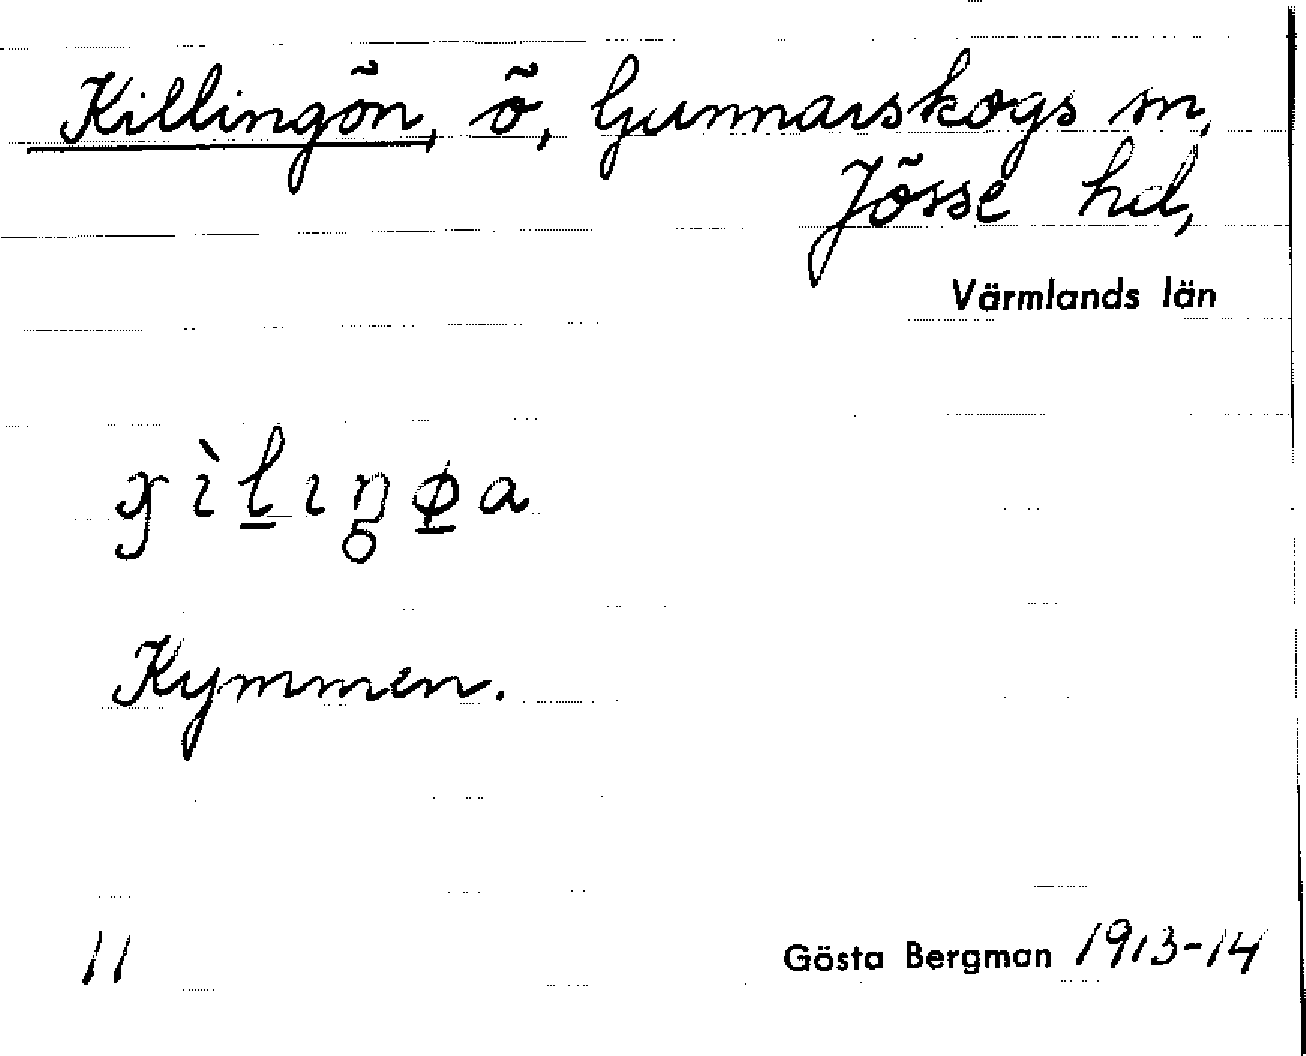 Killingön, ö, Gunnarskogs sn,
Jösse hd,
Värmlands län
Kymmen.
11
Gösta Bergman 1913-14